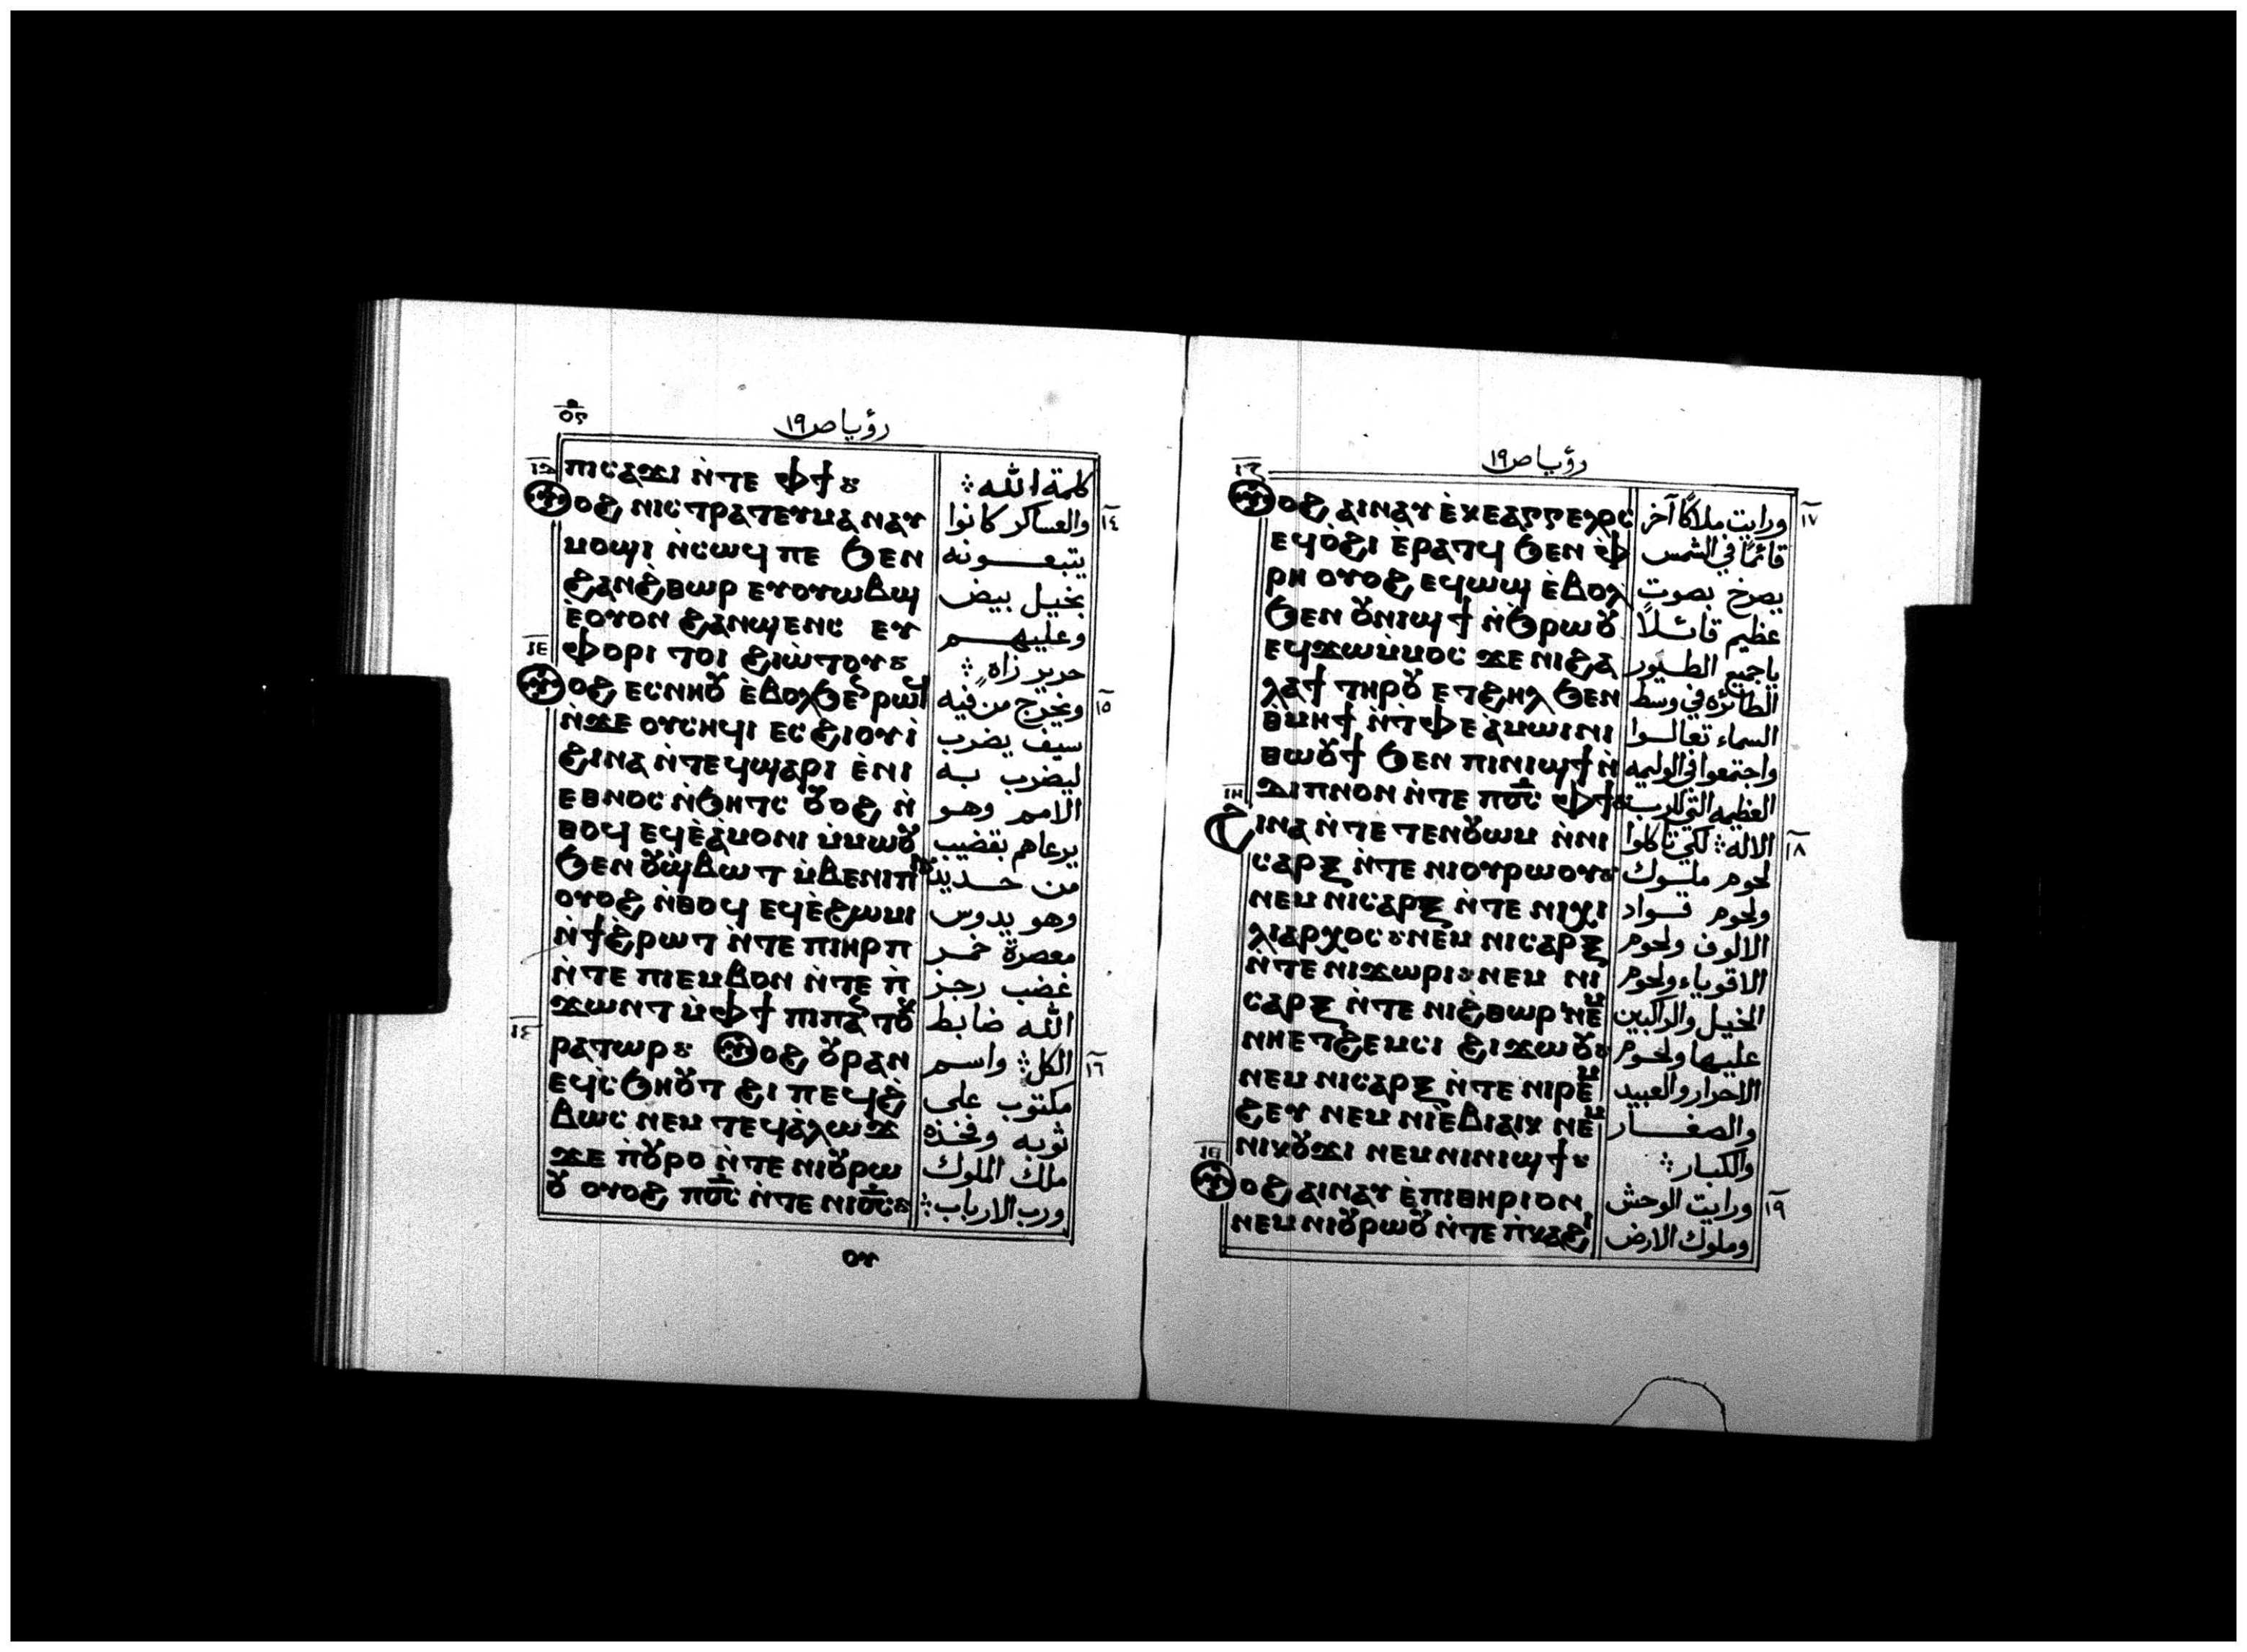 رؤيا ص ١٩
ⲡⲓⲥⲁϫⲓ ⲛ̀ⲧⲉ ⲫϯ
ⲟϩ ⲛⲓⲥⲧⲣⲁⲧⲉⲩⲙⲁ ⲛⲁⲩ
ⲙⲟϣⲓ ⲛ̀ⲥⲱϥ ⲡⲉ ϧⲉⲛ
ϩⲁⲛϩ̀ⲑⲱⲣ ⲉⲩⲟⲩⲱⲃϣ
ⲉ̀ⲟⲩⲟⲛ ϩⲁⲛϣⲉⲛⲥ ⲉⲩ
ⲫⲟⲣⲓ ⲧⲟⲓ ϩⲓⲱ̀ⲧⲟⲩ
ⲟϩ ⲉⲥⲛⲏⲟⲩ ⲉ̀ⲃⲟⲗϧⲉⲛ ⲣⲱϥ
ⲛ̀ϫⲉ ⲟⲩⲥⲏϥⲓ ⲉⲥϩⲓⲟⲩⲓ̀
ϩⲓⲛⲁ ⲛ̀ⲧⲉϥϣⲁⲣⲓ ⲉ̀ⲛⲓ
ⲉⲑⲛⲟⲥ ⲛ̀ϧⲏⲧⲥ ⲟⲩⲟϩ ⲛ̀
ⲑⲟϥ ⲉϥⲉ̀ⲁ̀ⲙⲟⲛⲓ ⲙ̀ⲙⲱⲟⲩ
ϧⲉⲛ ⲟⲩϣ̀ⲃⲱⲧ ⲙ̀ⲃⲉⲛⲓⲡⲓ
ⲟⲩⲟϩ ⲛ̀ⲑⲟϥ ⲉϥⲉ̀ϩⲱⲙⲓ
ⲛ̀ϯϩ̀ⲣⲱⲧ ⲛ̀ⲧⲉ ⲡⲓⲏⲣⲡ
ⲛ̀ⲧⲉ ⲡⲓⲉⲙⲃⲟⲛ ⲛ̀ⲧⲉ ⲡ̀
ϫⲱⲛⲧ ⲙ̀ⲫϯ ⲡⲓⲡⲁⲛⲧⲟⲩ
ⲣⲁⲧⲱⲣ ⲟϩ ⲟⲩⲣⲁⲛ
ⲉϥⲥ̀ϧⲏⲟⲩⲧ ϩⲓ ⲡⲉϥϩ̀
ⲃⲱⲥ ⲛⲉⲙ ⲧⲉϥⲁ̀ⲗⲱϫ
ϫⲉ ⲡ̀ⲟⲩⲣⲟ ⲛ̀ⲧⲉ ⲛⲓⲟⲩⲣⲱ
ⲟⲩ ⲟⲩⲟϩ ⲡⲟ̅ⲥ̅ ⲛ̀ⲧⲉ ⲛⲓⲟ̅ⲥ̅
كلمة الله
١٤ والعساكر كانوا
يتبعـــونه
بخيل بيض
وعليهـــم
حرير زاهٍ
١٥ ويخرج من فيه
سيف يضرب
ليضرب به
الامم وهو
يرعاهم بقضيب
من حـــديد
وهو يدوس
معصرة خمر
غضب رجز
الله ضابط
١٦ الكل واسم
مكتوب على
ثوبه وفخذه
ملك الملوك
ورب الارباب
ⲟⲩ
رؤيا ص ١٩
ⲟϩ ⲁⲓⲛⲁⲩ ⲉ̀ⲕⲉⲁⲅⲅⲉⲗⲟⲥ
ⲉϥⲟ̀ϩⲓ ⲉ̀ⲣⲁⲧϥ ϧⲉⲛ ⲫ̀
ⲣⲏ ⲟⲩⲟϩ ⲉϥⲱϣ ⲉ̀ⲃⲟⲗ
ϧⲉⲛ ⲟⲩⲛⲓϣϯ ⲛ̀ϧ̀ⲣⲱⲟⲩ
ⲉϥϫⲱⲙ̀ⲙⲟⲥ ϫⲉ ⲛⲓϩⲁ
ⲗⲁϯ ⲧⲏⲣⲟⲩ ⲉⲧϩⲏⲗ ϧⲉⲛ
ⲑ̀ⲙⲏϯ ⲛ̀ⲧ̀ⲫⲉ ⲁ̀ⲙⲱⲓⲛⲓ
ⲑⲱⲟⲩϯ ϧⲉⲛ ⲡⲓⲛⲓϣϯ ⲛ̀
ⲇⲓⲡⲛⲟⲛ ⲛ̀ⲧⲉ ⲡⲟ̅ⲥ̅ ⲫϯ
ϩⲓⲛⲁ ⲛ̀ⲧⲉⲧⲉⲛⲟⲩⲱⲙ ⲛ̀ⲛⲓ
ⲥⲁⲣⲝ ⲛ̀ⲧⲉ ⲛⲓⲟⲩⲣⲱⲟⲩ
ⲛⲉⲙ ⲛⲓⲥⲁⲣⲝ ⲛ̀ⲧⲉ ⲛⲓⲭⲓ
ⲗⲓⲁⲣⲭⲟⲥ ⲛⲉⲙ ⲛⲓⲥⲁⲣⲝ
ⲛ̀ⲧⲉ ⲛⲓϫⲱⲣⲓ ⲛⲉⲙ ⲛⲓ
ⲥⲁⲣⲝ ⲛ̀ⲧⲉ ⲛⲓϩ̀ⲑⲱⲣ ⲛⲉⲙ
ⲛⲏⲉⲧϩⲉⲙⲥⲓ ϩⲓϫⲱⲟⲩ
ⲛⲉⲙ ⲛⲓⲥⲁⲣⲝ ⲛ̀ⲧⲉ ⲛⲓⲣⲉⲙ
ϩⲉⲩ ⲛⲉⲙ ⲛⲓⲉ̀ⲃⲓⲁⲓⲕ ⲛⲉⲙ
ⲛⲓⲕⲟⲩϫⲓ ⲛⲉⲙ ⲛⲓⲛⲓϣϯ
ⲟϩ ⲁⲓⲛⲁⲩ ⲉ̀ⲡⲓⲑⲏⲣⲓⲟⲛ
ⲛⲉⲙ ⲛⲓⲟⲩⲣⲱⲟⲩ ⲛ̀ⲧⲉ ⲡ̀ⲕⲁϩⲓ
١٧ ورايت ملاكًا آخر
قائمًا في الشمس
يصرخ بصوت
عظيم قائلاً
ياجميع الطيور
الطائرة في وسط
السماء تعالـــوا
واجتمعوا في الوليمه
العظيمه التي للرب
١٨ الاله لكي تاكلوا
لحوم ملوك
ولحوم قـــواد
الالوف ولحوم
الاقوياء ولحوم
الخيل والراكبين
عليها ولحوم
الاحرار والعبيد
والصغـــار
والكبار
١٩ ورايت الوحش
وملوك الارض